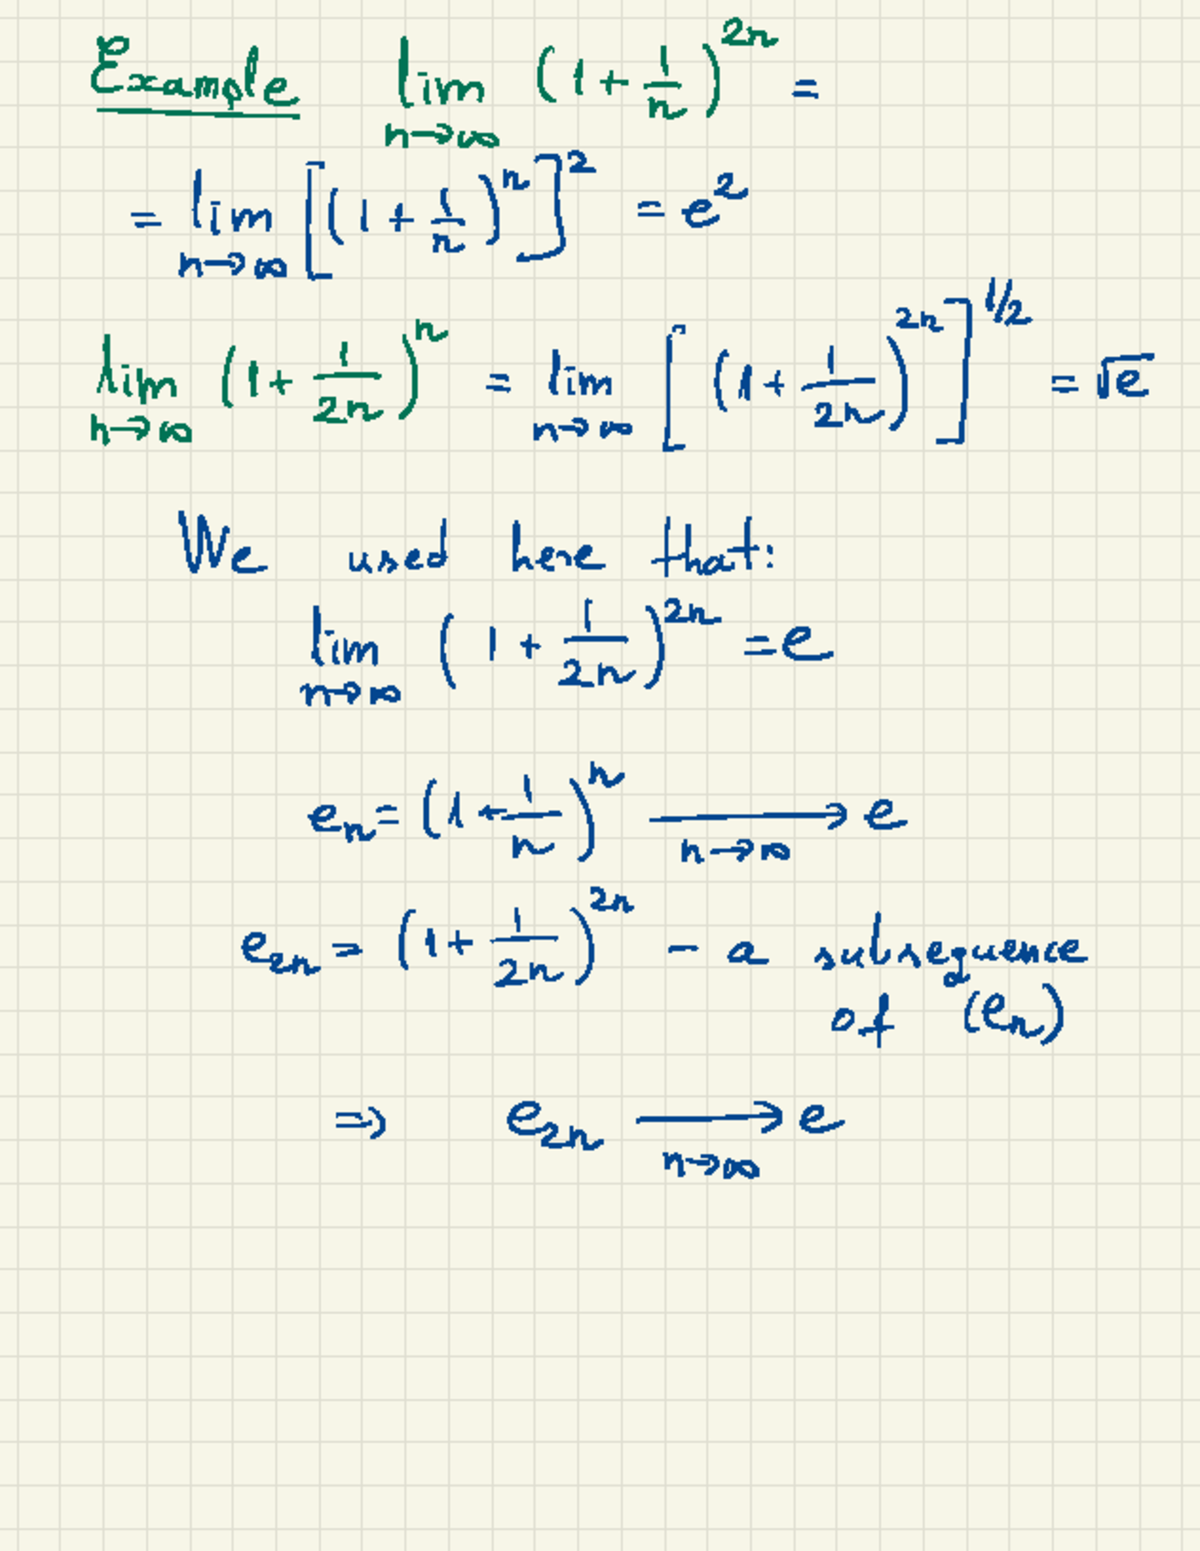 Example lim_{n→∞} (1 + 1/n)^{2n} =
= lim_{n→∞} [(1 + 1/n)^n]^2 = e^2
lim_{n→∞} (1 + 1/2n)^n = lim_{n→∞} [(1 + 1/2n)^{2n}]^{1/2} = √e
We used here that:
lim_{n→∞} (1 + 1/2n)^{2n} = e
e_n = (1 + 1/n)^n ⟶_{n→∞} e
e_{2n} = (1 + 1/2n)^{2n} - a subsequence
of (e_n)
⇒ e_{2n} ⟶_{n→∞} e